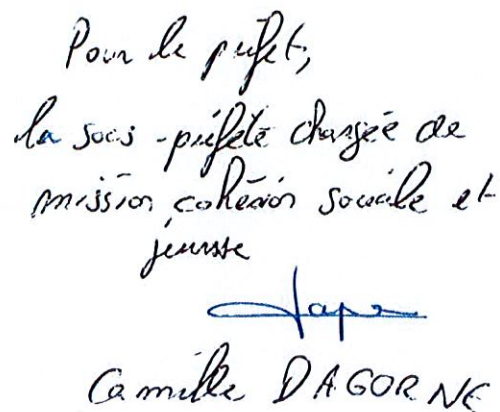 Pour le préfet,
la sous-préfète chargée de
mission cohésion sociale et
jeunesse
Camille DAGORNE